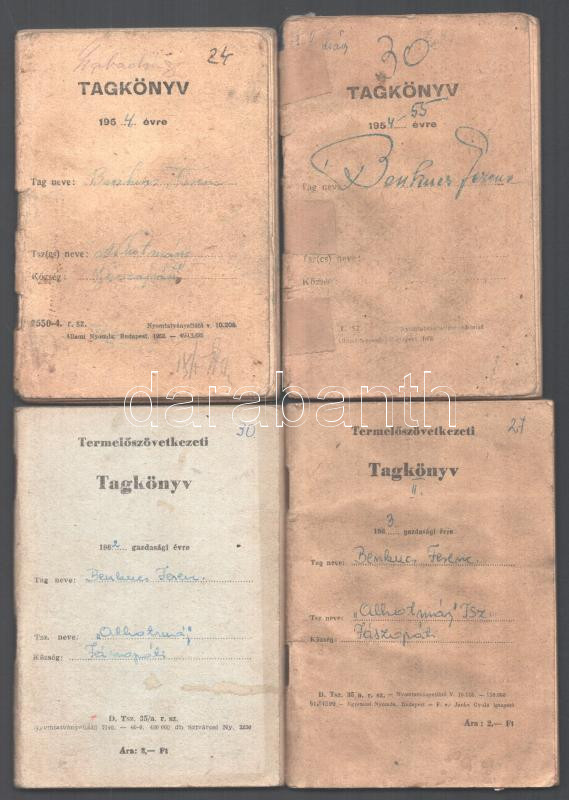 Szabadság
24
TAGKÖNYV
195 4. évre
Tag neve: Benkucs Ferenc
Tsz(cs) neve: Alkotmány
Község: Jászapáti
2550-4. r. sz. Nyomtatványellátó v. 10.208.
Állami Nyomda, Budapest, 1953.
30
TAGKÖNYV
1954-55 évre
Tag neve Benkucs Ferenc
Tsz(cs) neve:
Község
r. sz.
darabanth
30
Termelőszövetkezeti
Tagkönyv
1962 gazdasági évre
Tag neve: Benkucs Ferenc.
Tsz. neve: „Alkotmány"
Község: Jászapáti
D. Tsz. 35/a. r. sz.
Ára: 2,— Ft
27
Termelőszövetkezeti
Tagkönyv
II.
1963 gazdasági évre
Tag neve: Benkucs Ferenc.
Tsz neve: „Alkotmány" Tsz.
Község: Jászapáti
D. Tsz. 35/a. r. sz. — Nyomtatványellátó V. 10.108. — 150.000
— Egyetemi Nyomda, Budapest — F. v. Janka Gyula igazgató
Ára: 2,— Ft